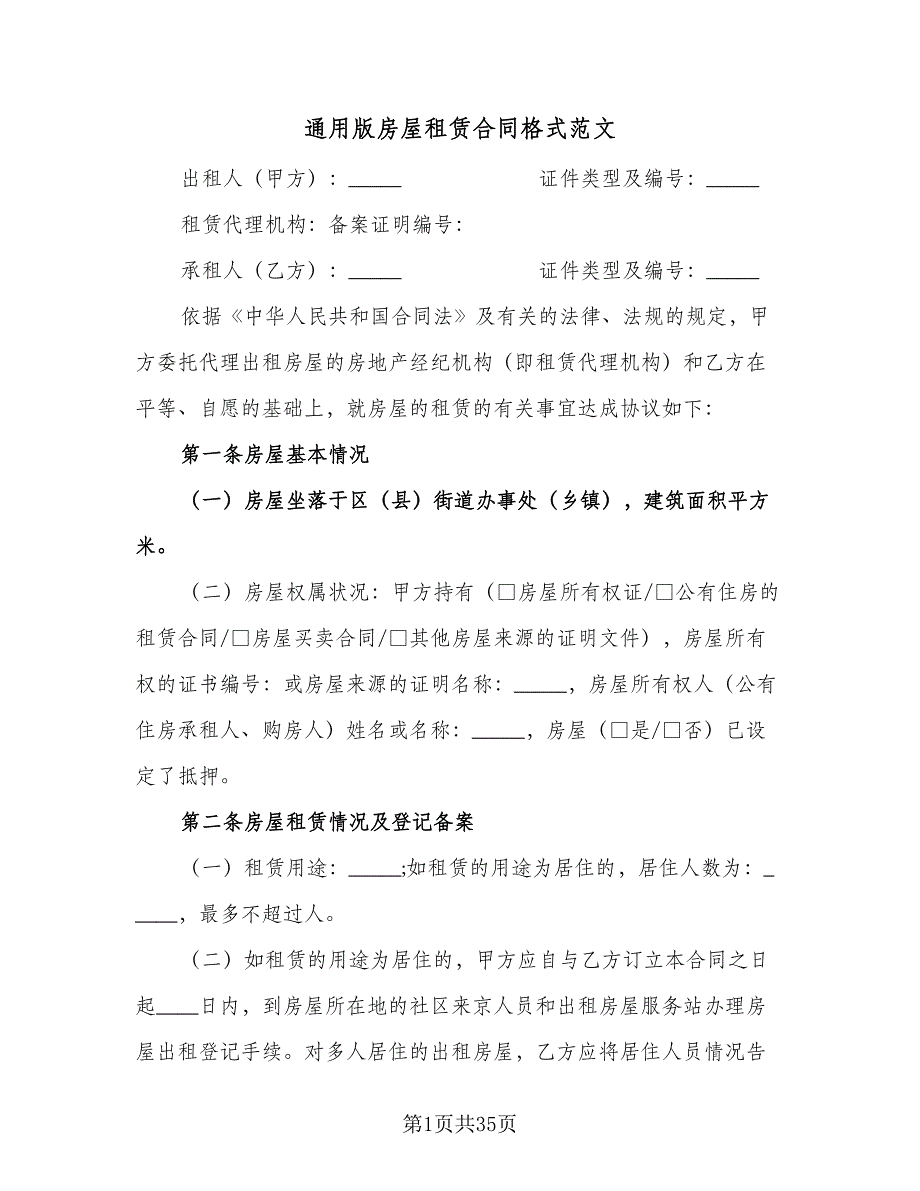 通用版房屋租赁合同格式范文
出租人（甲方）：_____ 证件类型及编号：_____
租赁代理机构：备案证明编号：
承租人（乙方）：_____ 证件类型及编号：_____
依据《中华人民共和国合同法》及有关的法律、法规的规定，甲
方委托代理出租房屋的房地产经纪机构（即租赁代理机构）和乙方在
平等、自愿的基础上，就房屋的租赁的有关事宜达成协议如下：
第一条房屋基本情况
（一）房屋坐落于区（县）街道办事处（乡镇），建筑面积平方
米。
（二）房屋权属状况：甲方持有（□房屋所有权证/□公有住房的
租赁合同/□房屋买卖合同/□其他房屋来源的证明文件），房屋所有
权的证书编号：或房屋来源的证明名称：_____，房屋所有权人（公有
住房承租人、购房人）姓名或名称：_____，房屋（□是/□否）已设
定了抵押。
第二条房屋租赁情况及登记备案
（一）租赁用途：_____;如租赁的用途为居住的，居住人数为：_
____，最多不超过人。
（二）如租赁的用途为居住的，甲方应自与乙方订立本合同之日
起____日内，到房屋所在地的社区来京人员和出租房屋服务站办理房
屋出租登记手续。对多人居住的出租房屋，乙方应将居住人员情况告
第1页共35页